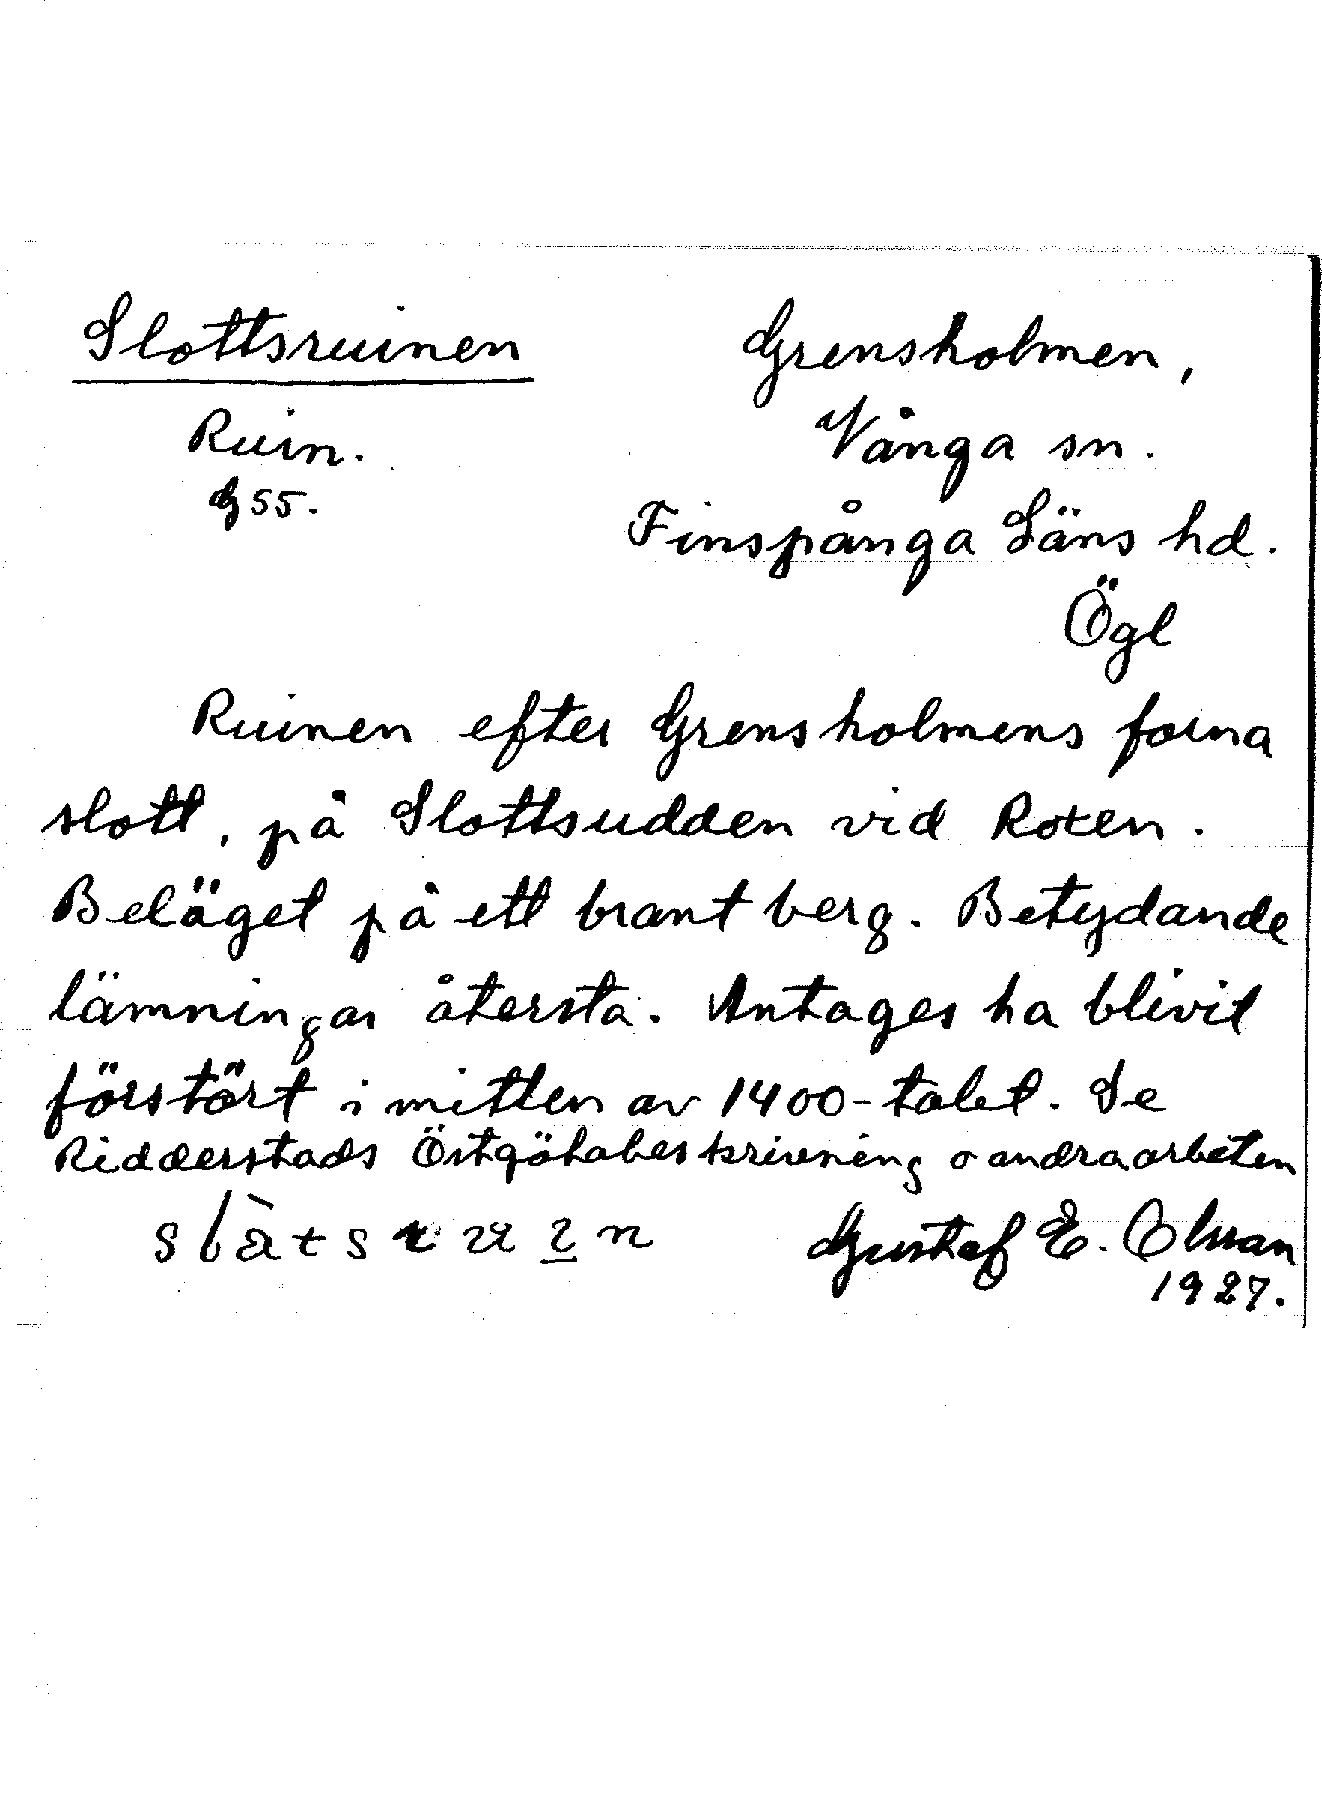 Slottsruinen
Grensholmen,
Ruin.
Vånga sn.
G 55.
Finspånga Läns hd.
Ögl
Ruinen efter Grensholmens forna
slott, på Slottsudden vid Roxen.
Beläget på ett brant berg. Betydande
lämningar återstå. Antages ha blivit
förstört i mitten av 1400-talet. Se
Ridderstads Östgötabeskrivning o andra arbeten
Gustaf E. Olsson
1927.